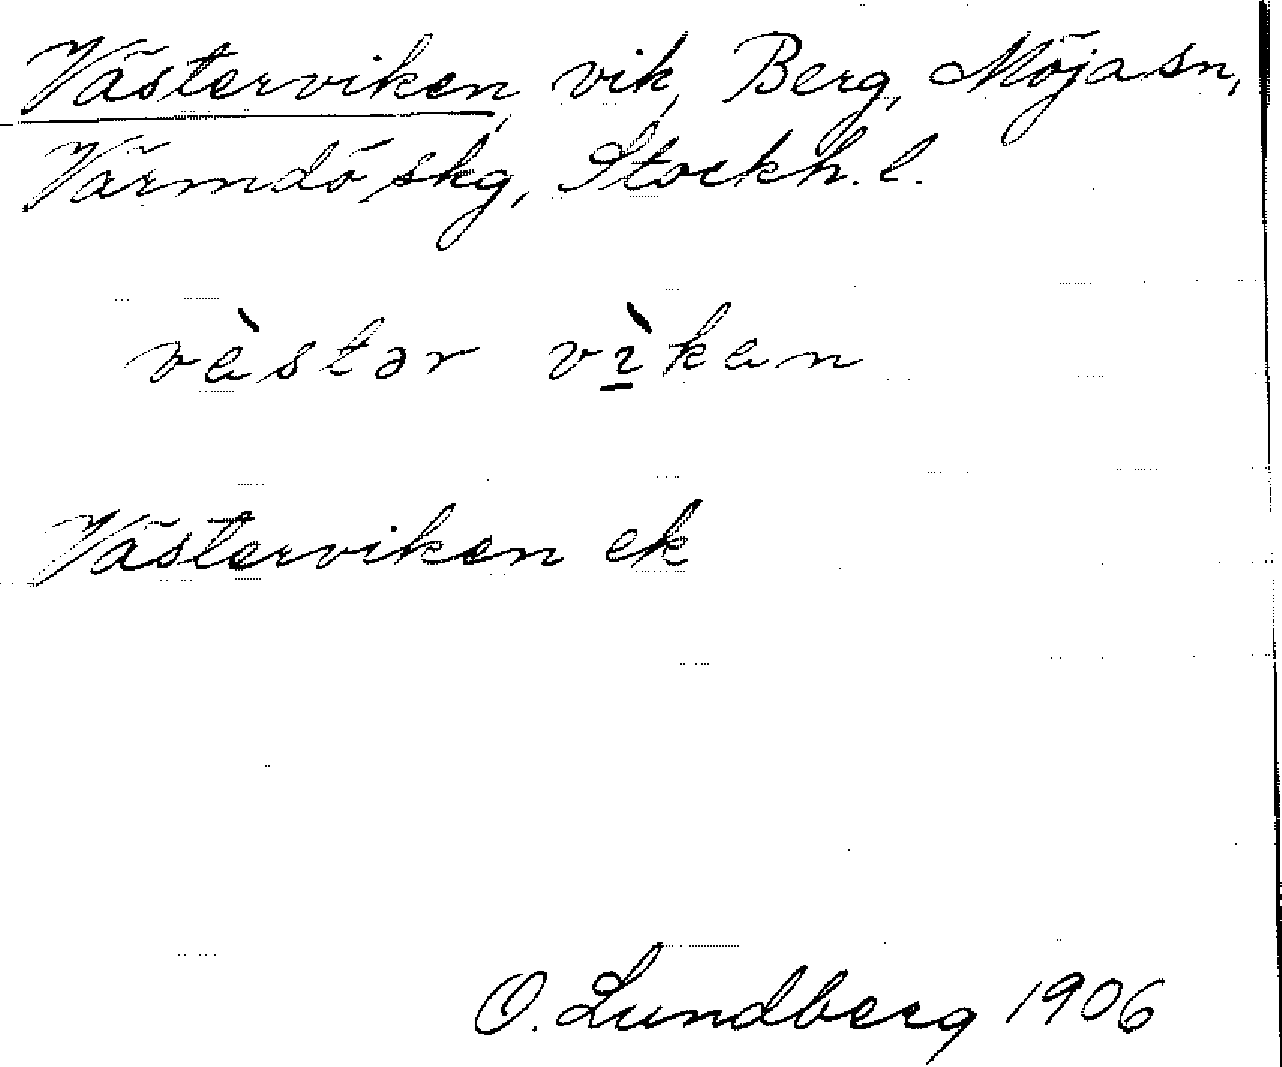 Västerviken, vik, Berg, Möja sn,
Värmdö skg, Stockh. l.
vèstər vì̠ken
Västerviken ek
O. Lundberg 1906